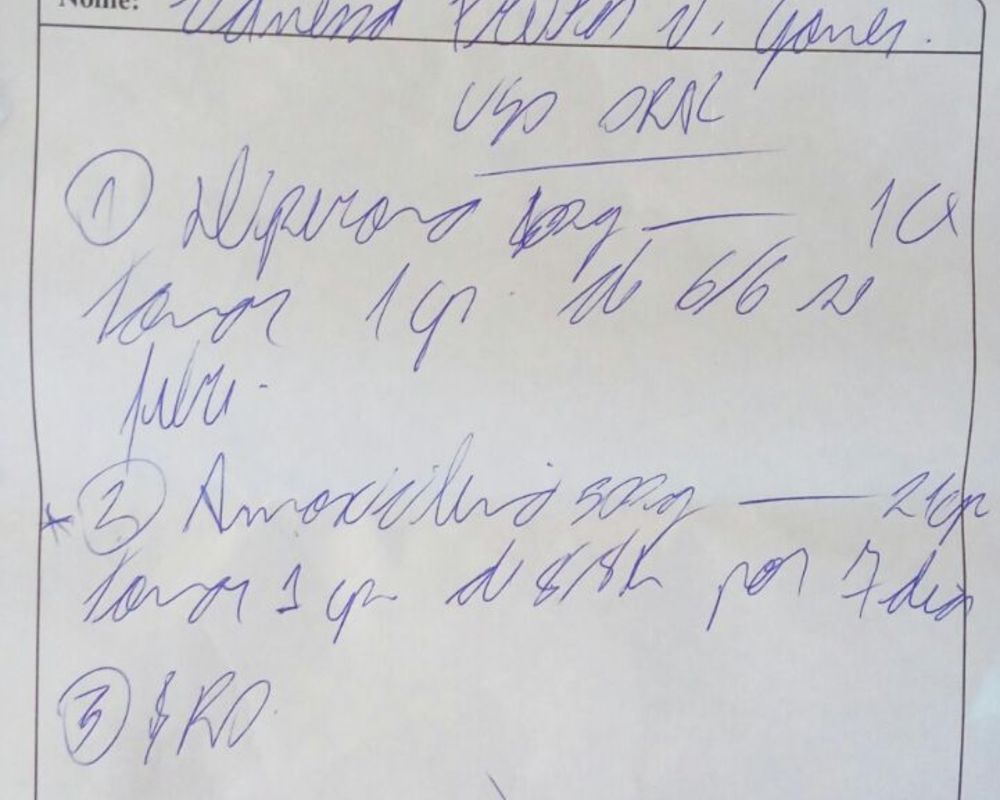 Nome: Vanessa Freitas V. Gomes.
USO ORAL
① Dipirona 500mg — 1 CX
tomar 1 cp. de 6/6 se
febre.
* ② Amoxicilina 500mg — 21cp
tomar 1 cp de 8/8h por 7 dias
③ SRO